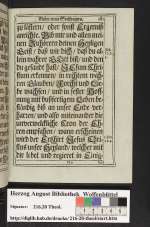 wissern, oder sonst Ergernis
anrichte. Gib mir und allen mei-
nen Zuhörern deinen Heiligen
Geist, daß wir dich, daß du al-
lein wahrer Gott bist, und den
du gesandt hast, JEsum Chri-
stum erkennen, in rechtem wah-
ren Glauben, Forcht und Lie-
be wachsen, und in fester Hoff-
nung mit bußfertigem Leben be-
ständig biß an unser Ende ver-
harren, und also miteinander die
unverwelckliche Cron der Eh-
ren empfahen, wann erscheinen
wird der Ertzhirt JEsus Chri-
stus unser Heyland, welcher mit
dir lebet und regieret in Einig-
Herzog August Bibliothek Wolfenbüttel
Signatur: 216.29 Theol.
http://diglib.hab.de/drucke/216-29-theol/start.htm